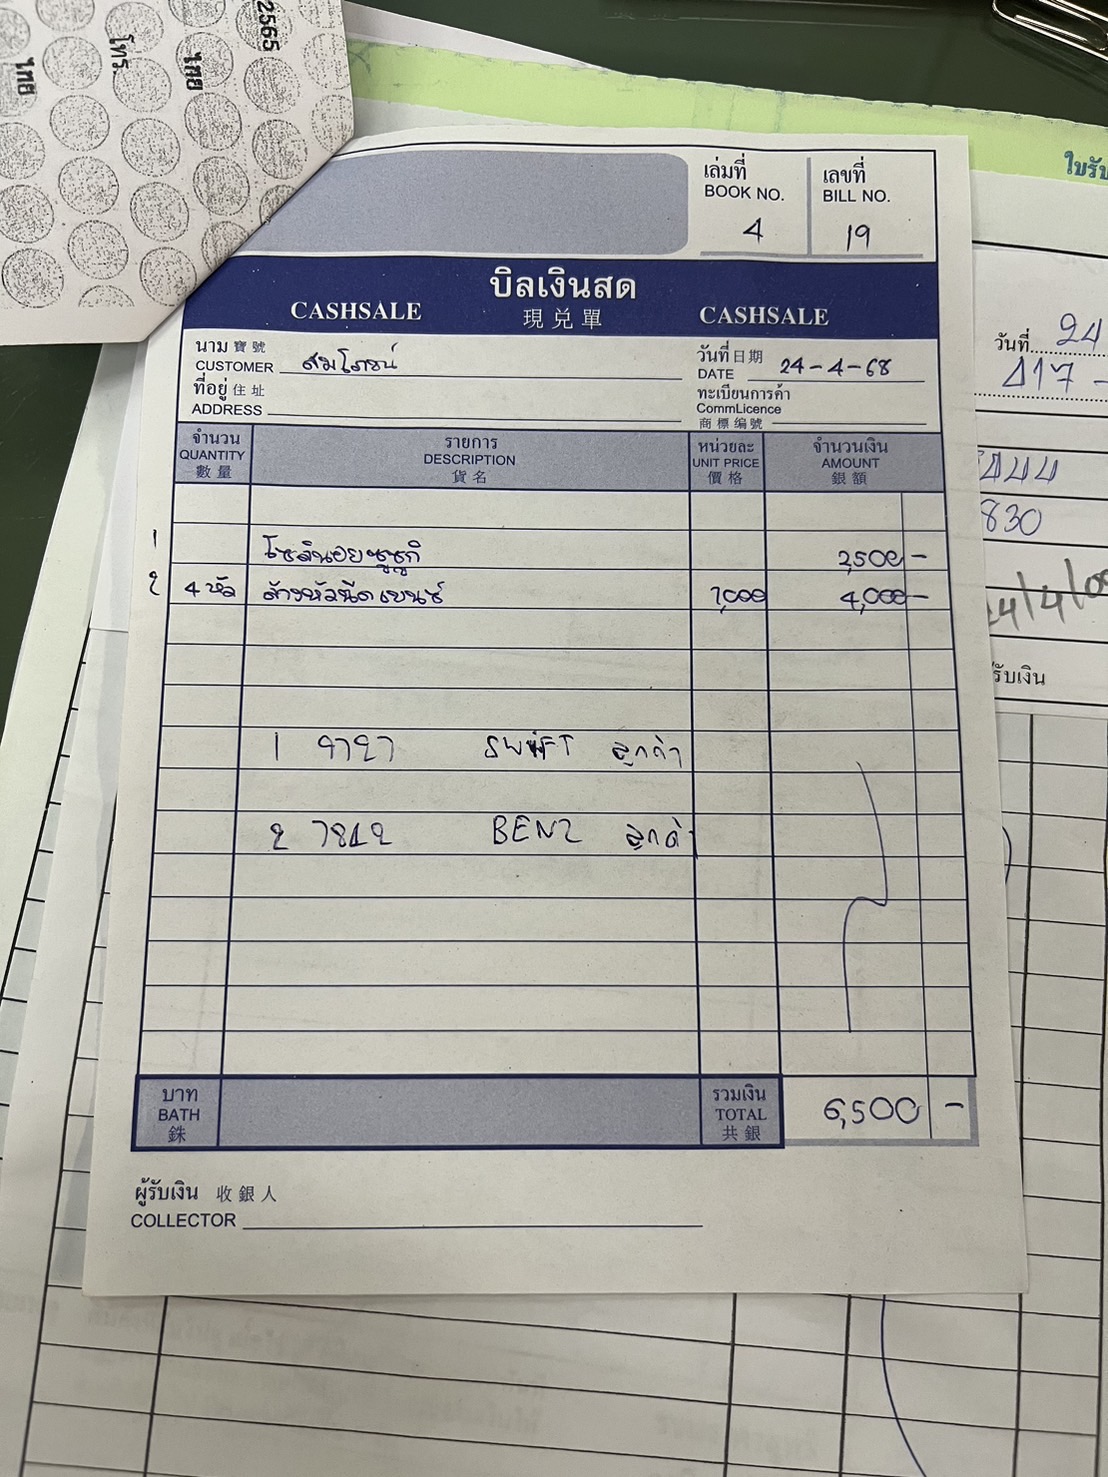 2565
โทร.
ไทย
ไทย
ใบรับ
เล่มที่
BOOK NO.
4
เลขที่
BILL NO.
19
บิลเงินสด
CASHSALE 現兌單 CASHSALE
นาม 寶號
CUSTOMER สมโภชน์
วันที่ 日期
DATE 24-4-68
ที่อยู่ 住址
ADDRESS
ทะเบียนการค้า
CommLicence
商標编號
จำนวน
QUANTITY
數量
รายการ
DESCRIPTION
貨名
หน่วยละ
UNIT PRICE
價格
จำนวนเงิน
AMOUNT
銀額
1 โซลินอยซูซูกิ 2,500 -
2 4 หัว ล้างหัวฉีดเบนซ์ 1,000 4,000 -
1 9727 SWIFT ลูกค้า
2 7812 BENZ ลูกค้า
บาท
BATH
銖
รวมเงิน
TOTAL
共銀
6,500 -
ผู้รับเงิน 收銀人
COLLECTOR
วันที่ 24
830
รับเงิน